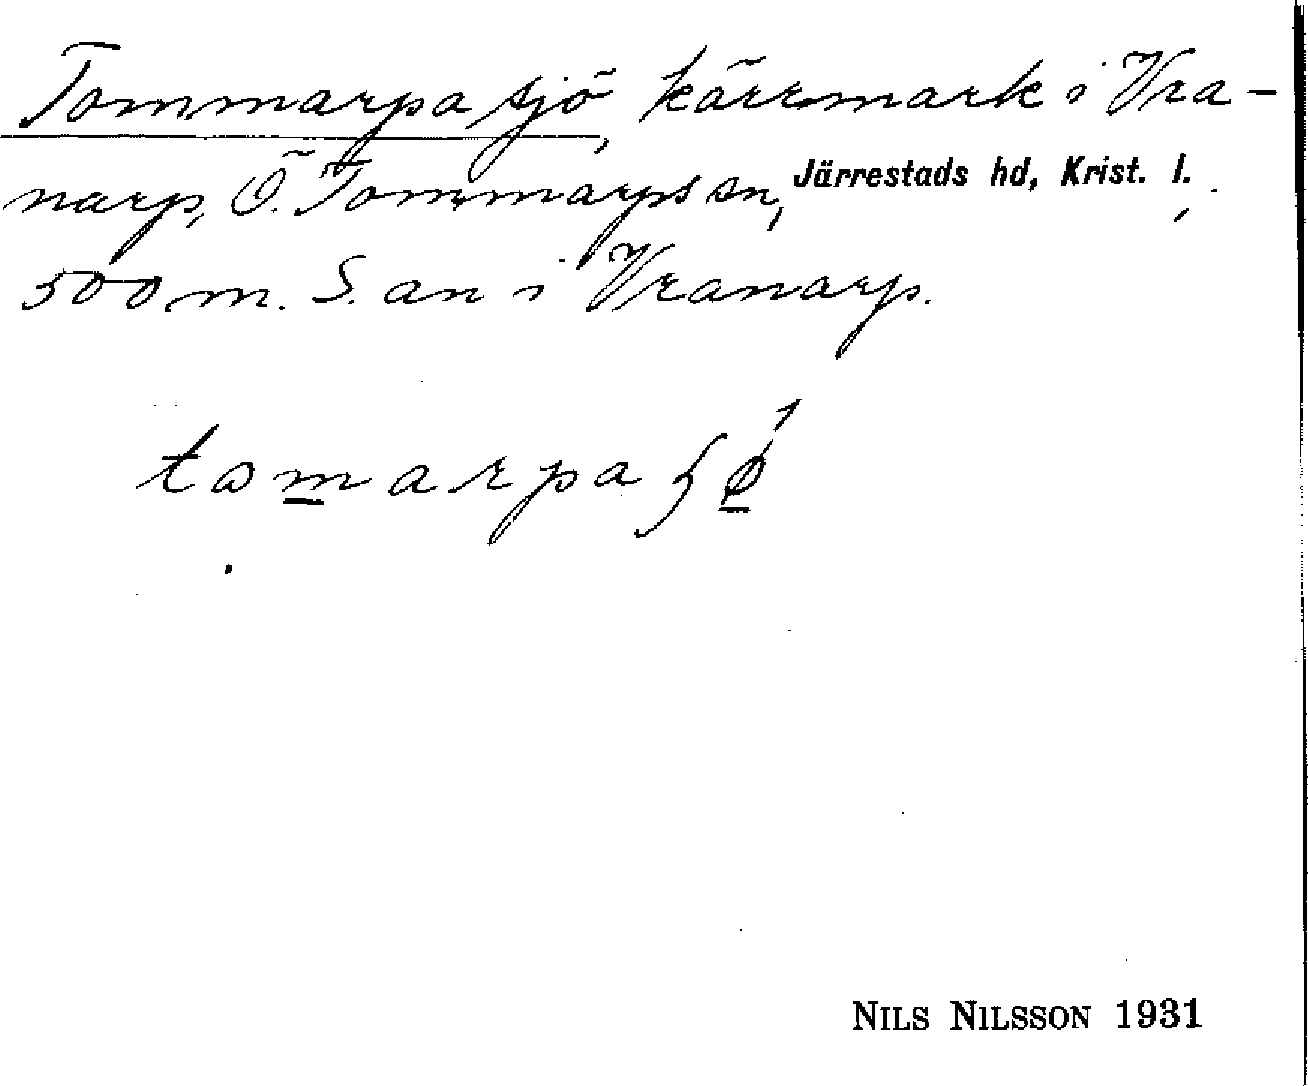 Tommarpa sjö, kärrmark i Vra-
narp, Ö. Tommarps sn, Järrestads hd, Krist. l.,
500 m. S. an i Vranarp.
tomarpa ʃǿ̱
NILS NILSSON 1931